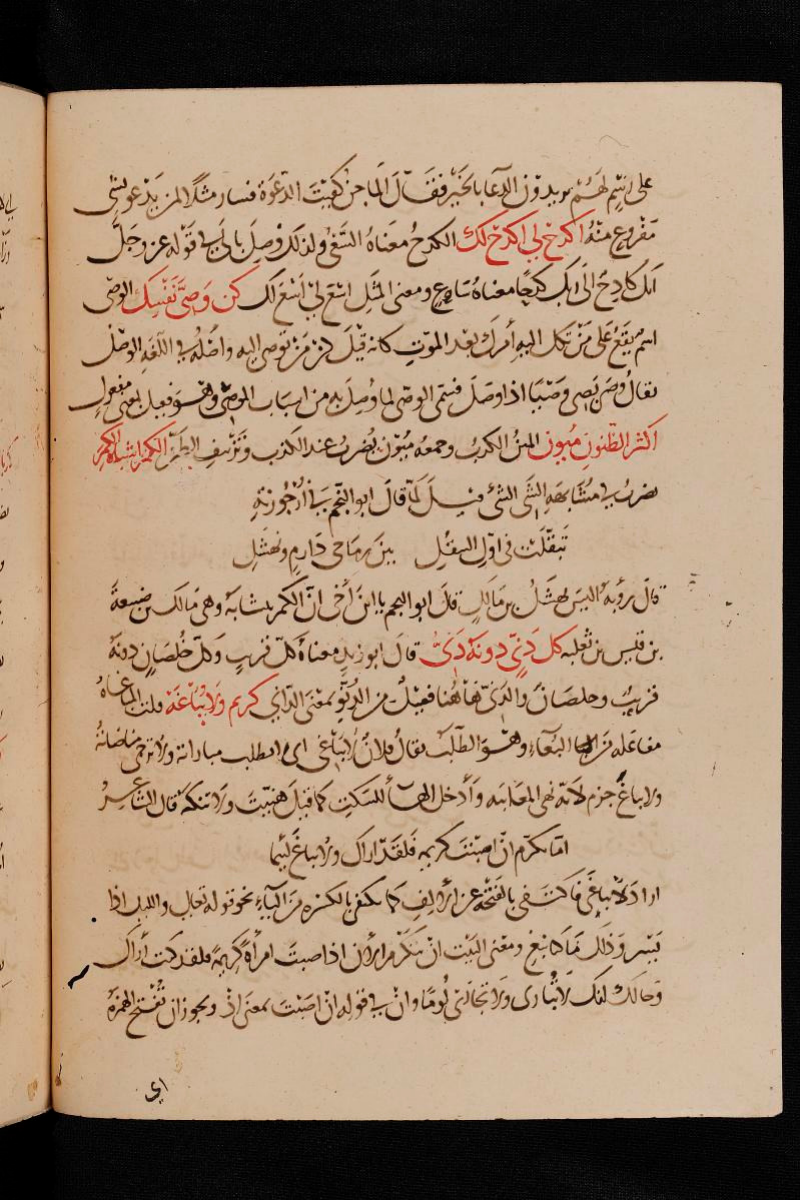 على اسم لهم يريدون الدعا بالخير فقال الماجن كفيت الدعوة فسار مثلا لمن يدعو بشئ
مفروغ منه اكدح لي اكدح لك الكدح معناه السعى ولذلك وصل بالى في قوله عز وجل
انك كادح الى ربك كدحا معناه ساع ومعنى المثل اسع لي اسع لك كن وصي نفسك الوصى
اسم يقع على من تكل اليه أمرك بعد الموت كانه قيل كن من توصى اليه واصله في اللغه الوصل
يقال وصى يصى وصيا اذا وصل فسمى الوصى لما وصل به من اسباب الموصى وهو فعيل بمعنى مفعول
اكثر الظنون ميون المين الكذب وجمعه ميون يضرب عند الكذب وتزييف الظن الكمر اشباه الكمر
يضرب في مشابهة الشئ الشئ قيل لما قال ابو النجم في ارجوزته
تبقلت في اول التبقل بين رماحى دارم ونهشل
قال رؤبه اليس نهشل بن مالك قال ابو النجم يا ابن أخى ان الكمر يشابه وهى مالك بن ضبيعة
بن قيس بن ثعلبه كل دنيّ دونه دنيّ قال ابو زيد معناه كل قريب وكل خلصان دونه
قريب وخلصان والدنى هاهنا فعيل من الدنو بمعنى الدانى كريم ولا يباغه قلت المباغاه
مفاعله من البغاء وهو الطلب يقال فلان لا يباغى اى لا يطلب مباراته ولا ترجى مناضلته
ولا يباغ جزم لانه نهى المغايبه وأدخل الهآ للسكت كما قيل هنيت ولا تنكه قال الشاعر
اما تكرم ان اصبت كريمه فلقد اراك ولا تباغ لئيما
اراد لا تباغى فاكتفى بالفتحة عن الالف كما يكتفى بالكسره من الياء نحو قوله تعالى والليل اذا
يسر وذلك ما كنا نبغ ومعنى البيت ان تكرم الان اذا صبت امرأة كريمة فلقد كنت أراك
وحالك انك لا تبارى ولا تجارى لوما وان في قوله ان اصبت بمعنى اذ ويجوز ان تفتح الهمزة
اي